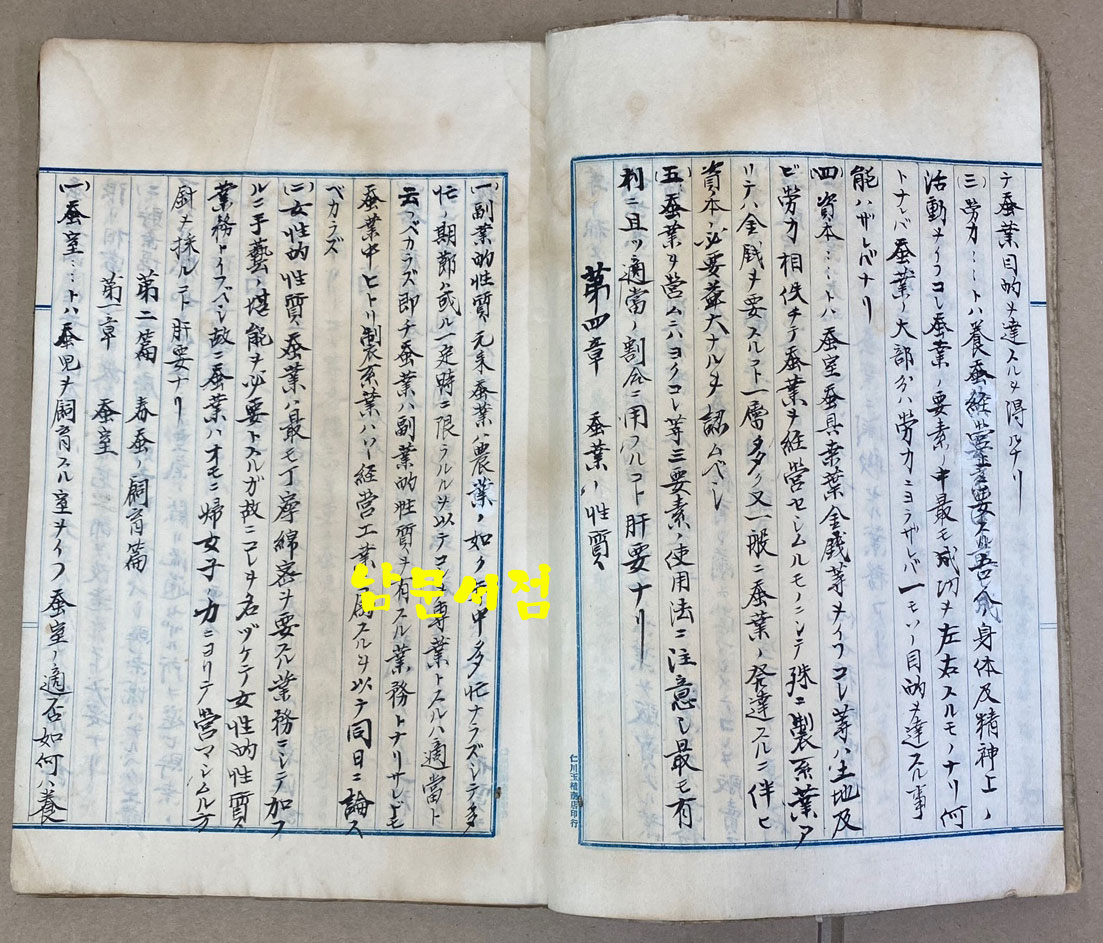 テ蚕業目的ヲ達スルヲ得ルナリ
(三)労力……トハ養蚕経営ニ要スル吾人身体及精神上ノ
活動ヲイフコレ蚕業ノ要素ノ中最モ成功ヲ左右スルモノナリ何
トナレバ蚕業ノ大部分ハ労力ニヨラザレバ一モソノ目的ヲ達スル事
能ハザレバナリ
(四)資本……トハ蚕室蚕具桑葉金銭等ヲイフコレ等ハ土地及
ビ労力相佚チテ蚕業ヲ経営セシムルモノニシテ殊ニ製糸業ア
リテハ金銭ヲ要スルコト一層多ク又一般ニ蚕業ノ発達スルニ伴ヒ
資本ノ必要益大ナルヲ認ムベシ
(五)蚕業ヲ営ムニハヨクコレ等三要素ノ使用法ニ注意シ最モ有
利ニ且ツ適當ノ割合ニ用フルコト肝要ナリ
第四章 蚕業ノ性質
(一)副業的性質 元来蚕業ハ農業ノ如ク年中多忙ナラズシテ多
忙ノ期節ハ或ル一定時ニ限ラルルヲ以テコレヲ専業トスルハ適當ト
云フベカラズ即チ蚕業ハ副業的性質ヲ有スル業務トナリサレドモ
蚕業中ヒトリ製糸業ハソノ経営工業ニ属スルヲ以テ同日ニ論ズ
ベカラズ
(二)女性的性質 蚕業ハ最モ丁寧綿密ヲ要スル業務ニシテ加フ
ルニ手藝ノ堪能ヲ必要トスルガ故ニコレヲ名ヅケテ女性的性質ノ
業務トイフベシ故ニ蚕業ハオモニ婦女子ノ力ニヨリテ営マシムル方
針ヲ採ルコト肝要ナリ
第二篇 春蚕ノ飼育篇
第一章 蚕室
(一)蚕室……トハ蚕児ヲ飼育スル室ヲイフ蚕室ノ適否如何ハ養
仁川玉植商店印行
남문서점